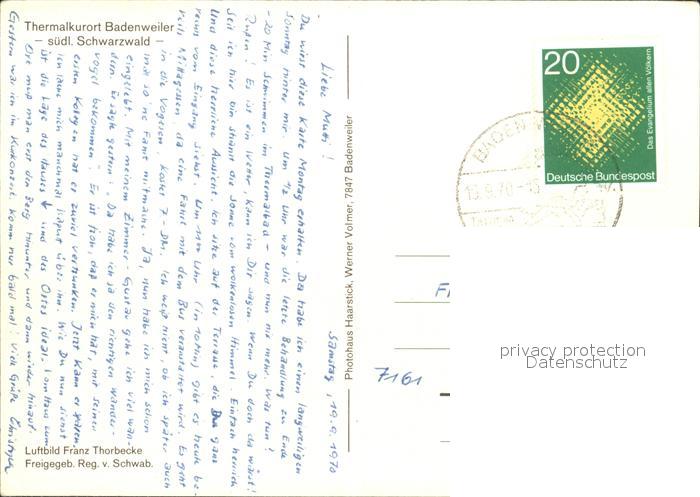 Thermalkurort Badenweiler
– südl. Schwarzwald –
Samstag, 19.9.1970
Liebe Mutti!
Du wirst diese Karte Montag erhalten. Da habe ich einen langweiligen
Sonntag hinter mir. Um 1/2 12 Uhr war die letzte Behandlung zu Ende
- 20 Min Schwimmen im Thermalbad - und nun nie mehr. Was tun?
Ruhen! Es ist ein Wetter, kann ich Dir sagen. Wenn Du doch da wärst!
Seit ich hier bin strahlt die Sonne vom wolkenlosen Himmel. Einfach herrlich
Und diese herrliche Aussicht. Ich sitze auf der Terrasse, die Du ganz
vorn vom Eingang siehst. Um Uhr (in 10 Min) gibt es heute be-
reits Mittagessen, da eine Fahrt mit dem Bus veranstaltet wird. Es geht
in die Vogesen. Kostet 7.- DM. Ich weiß nicht, ob ich später auch
mal so ne Fahrt mitmache. Ja, nun habe ich mich schon
eingelebt. Mit meinem Zimmer-Gustav gehe ich viel wan-
dern. Er sagte gestern: Da habe ich ja den richtigen Wander-
vogel bekommen. Er ist froh, daß er mich hat, mit seinen
ersten Kollegen hat er zuviel getrunken. Jetzt kann er sparen.
Ich lache mich manchmal kaputt über ihn. Wie Du nun siehst
ist die Lage des Hauses und des Ortes ideal. Vom Haus zum
Ort muß man erst den Berg hinunter und dann wieder hinauf.
Gestern war ich im Kurkonzert. Komm nur bald mal! Viele Grüße Christoph
Luftbild Franz Thorbecke
Freigegeb. Reg. v. Schwab.
Photohaus Haarstick, Werner Volmer, 7847 Badenweiler
20
Das Evangelium allen Völkern
Deutsche Bundespost
BADENW
19.9.70-13
7161
privacy protection
Datenschutz